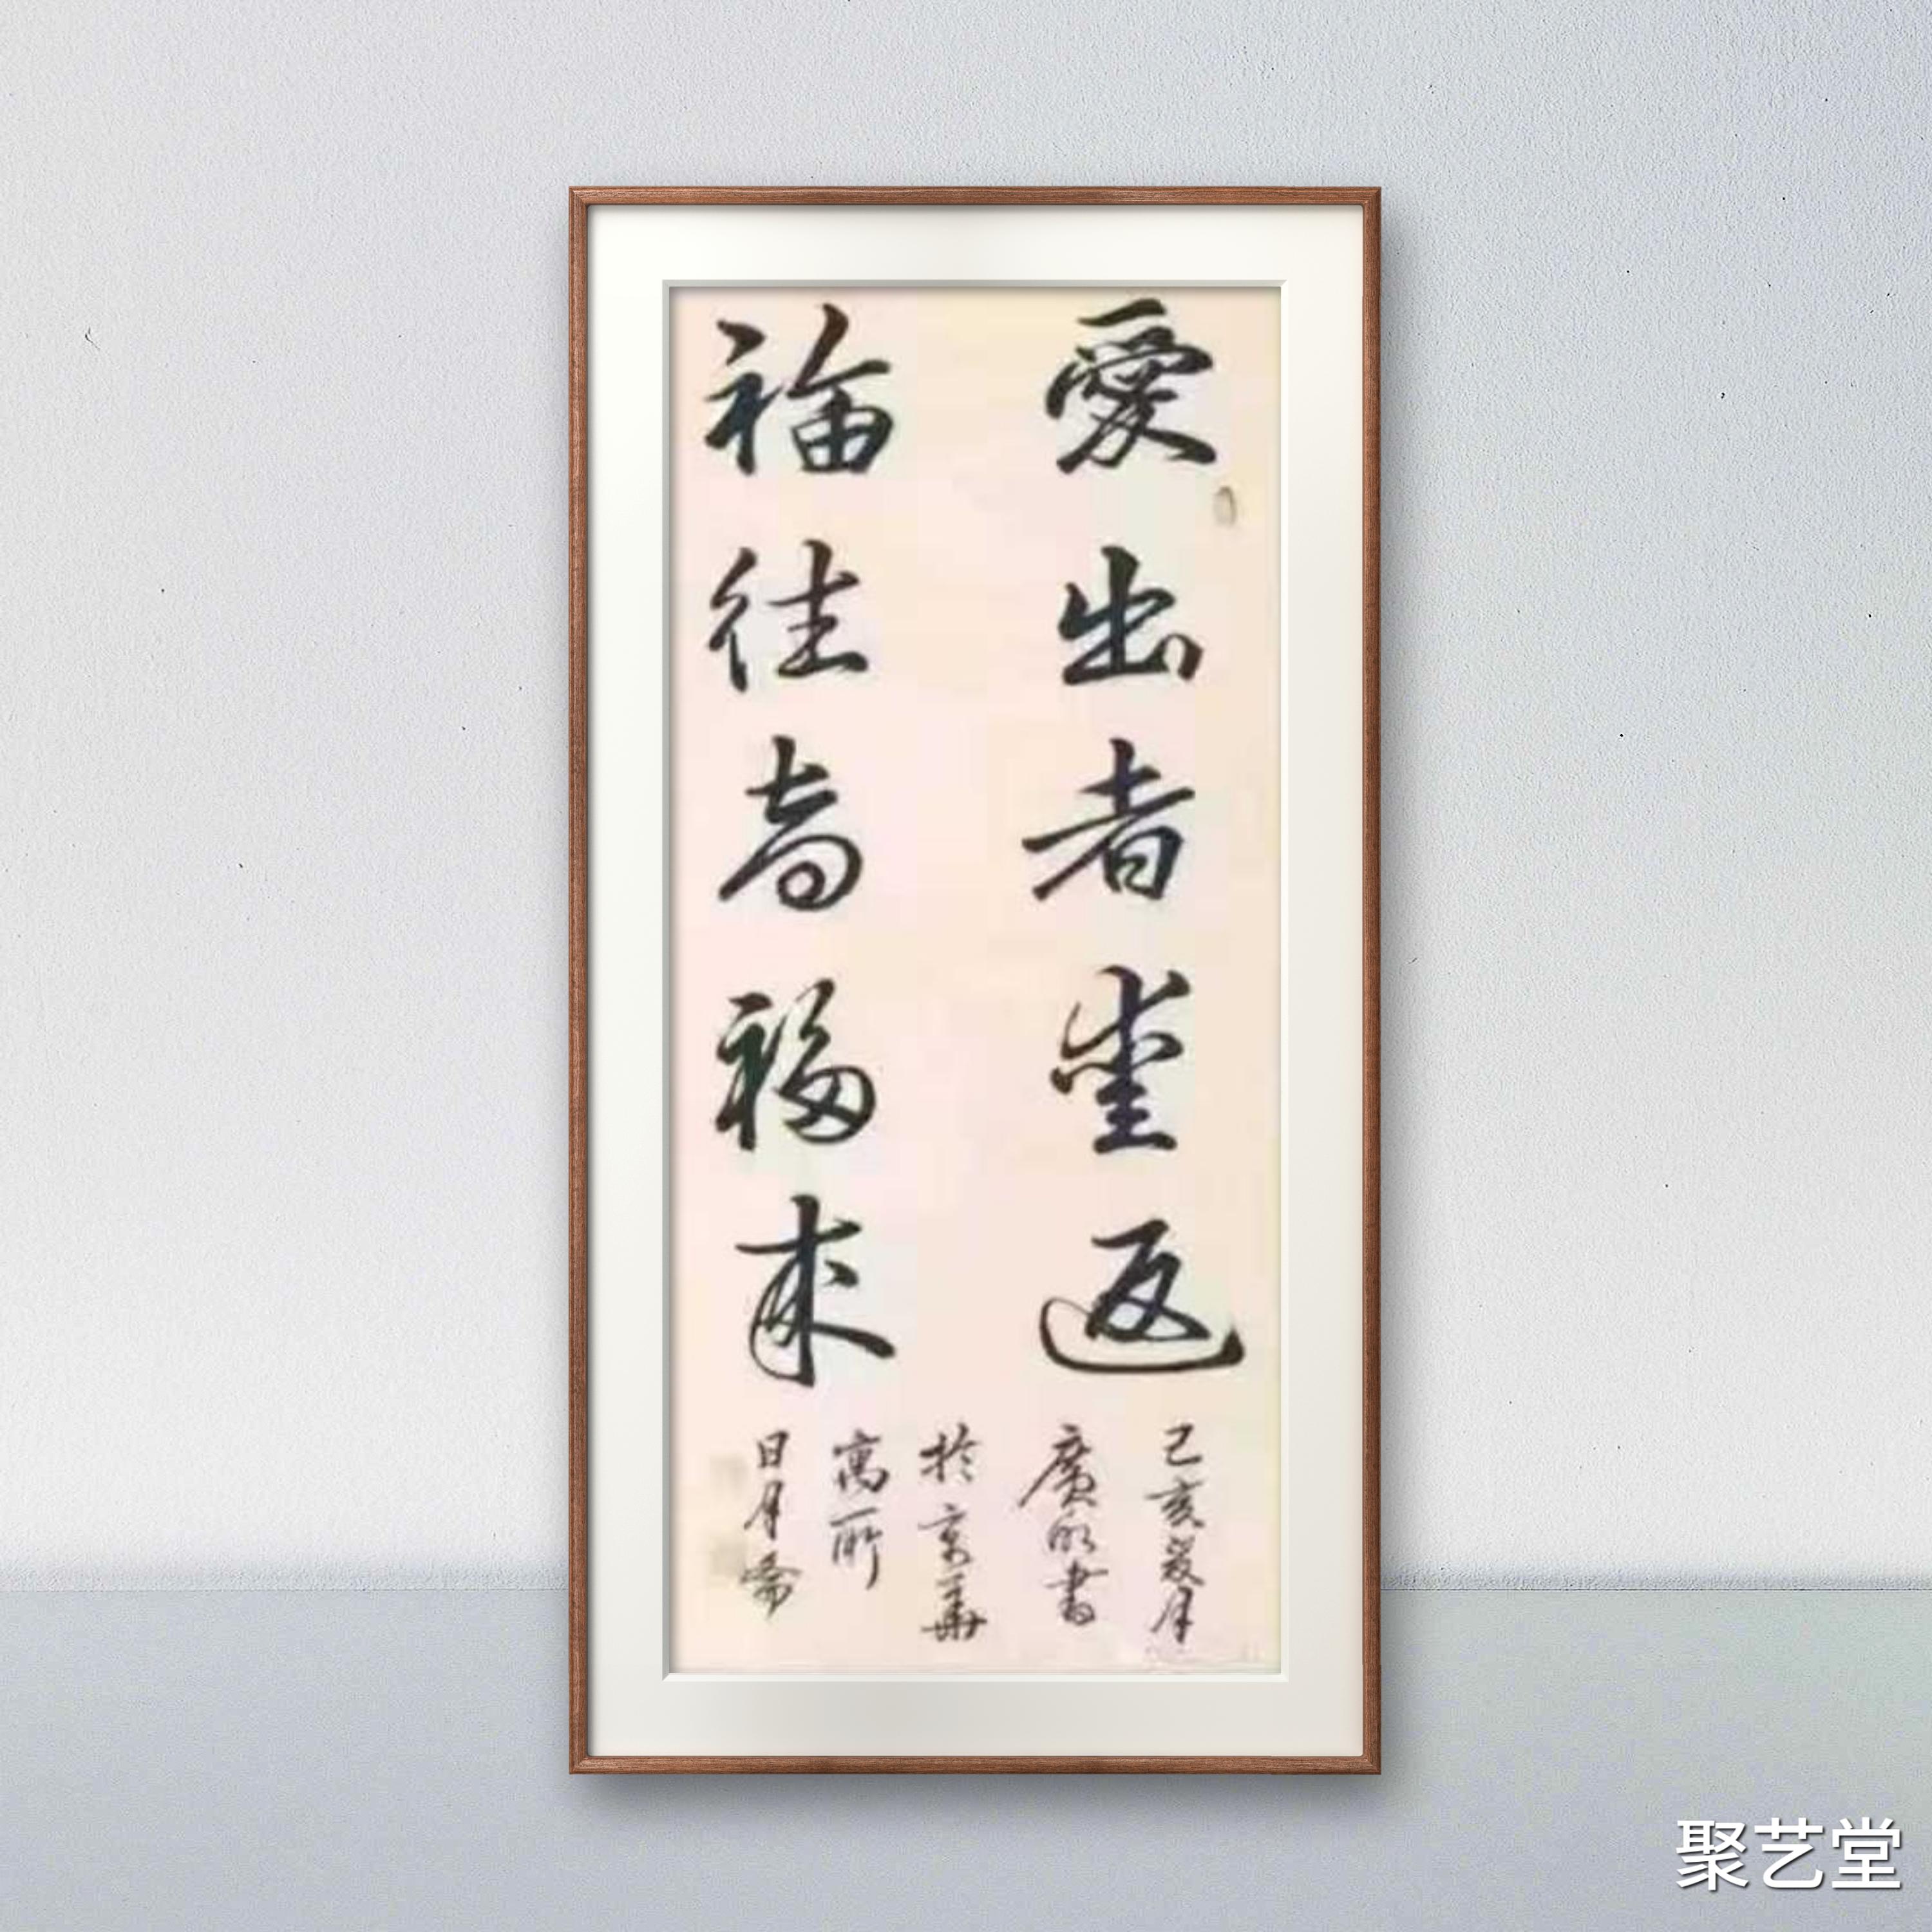 愛出者愛返
福往者福来
己亥夏月
廣明書
於京華
寓所
日月齋
聚艺堂